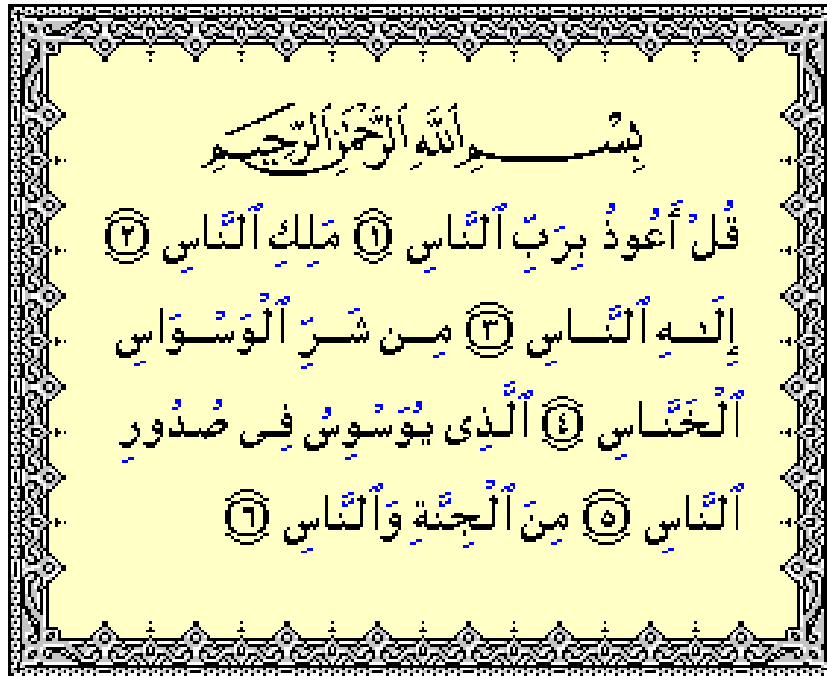 بِسْمِ ٱللَّهِ ٱلرَّحْمَٰنِ ٱلرَّحِيمِ
قُلْ أَعُوذُ بِرَبِّ ٱلنَّاسِ ١ مَلِكِ ٱلنَّاسِ ٢
إِلَـٰهِ ٱلنَّـاسِ ٣ مِـن شَـرِّ ٱلْوَسْـوَاسِ
ٱلْخَنَّـاسِ ٤ ٱلَّذِى يُوَسْوِسُ فِى صُدُورِ
ٱلنَّاسِ ٥ مِنَ ٱلْجِنَّةِ وَٱلنَّاسِ ٦